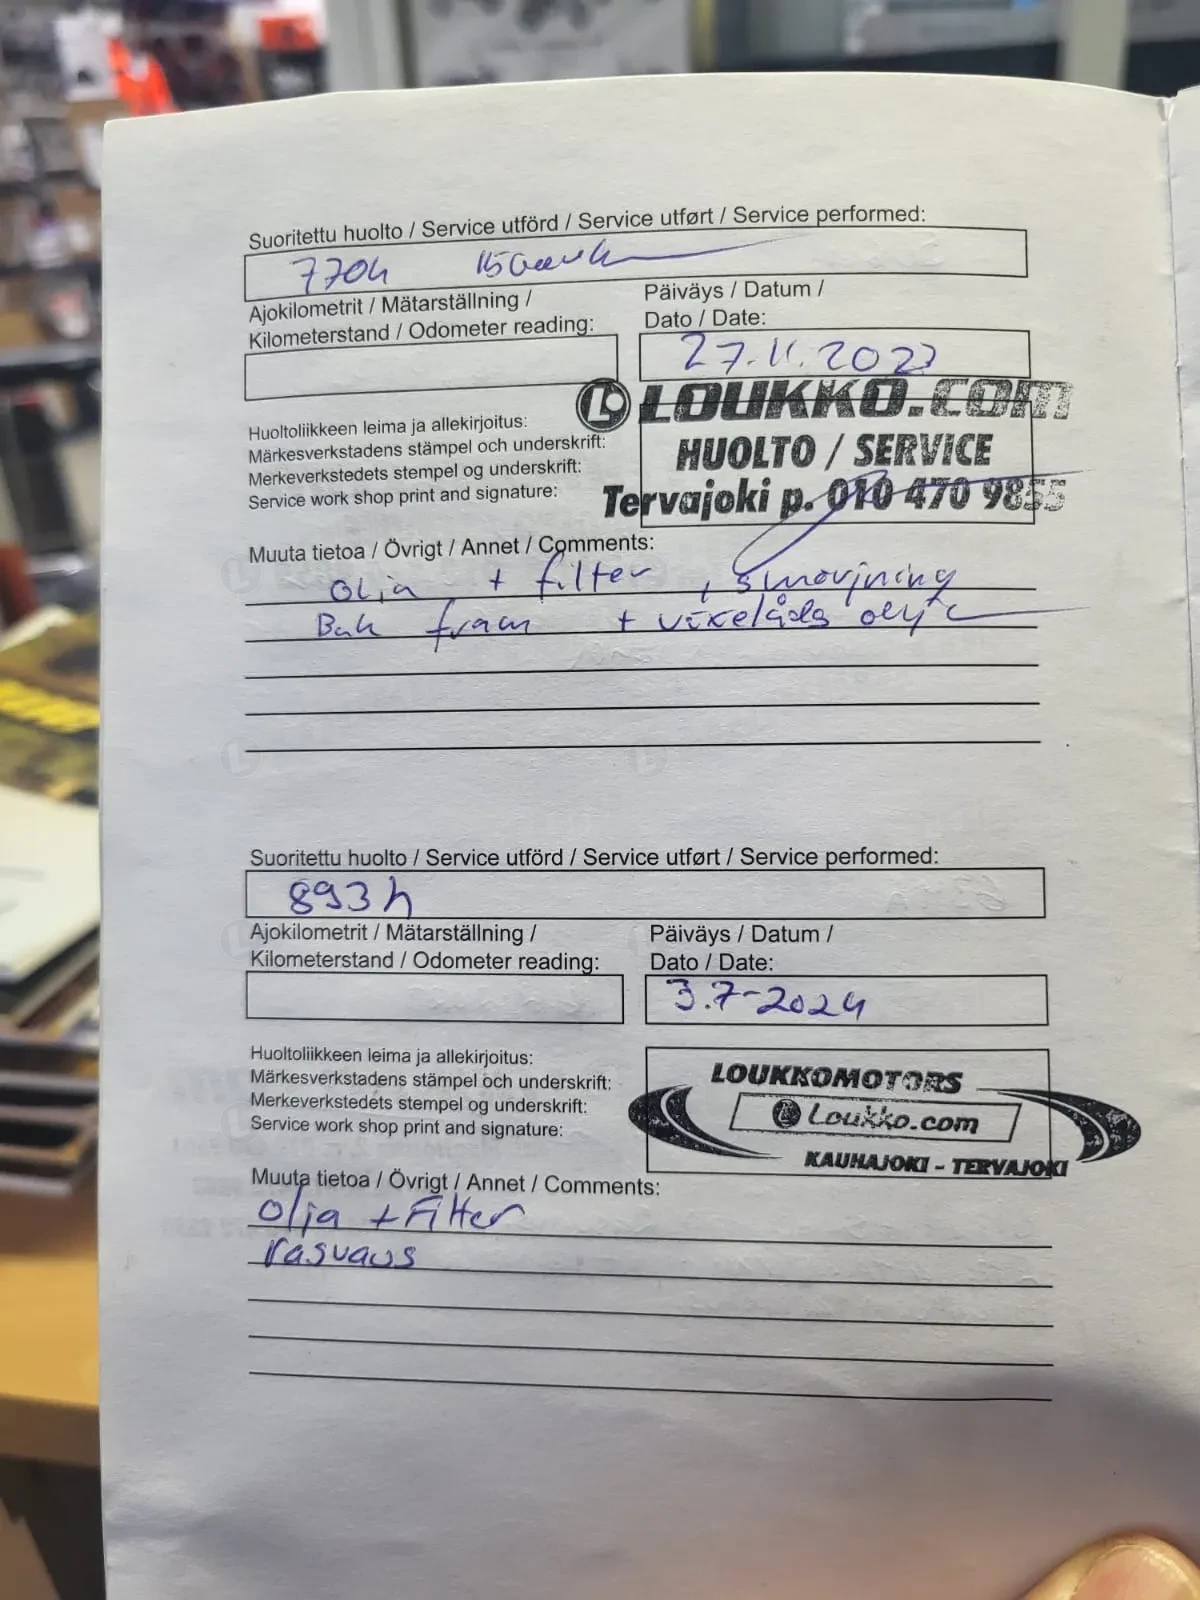 Suoritettu huolto / Service utförd / Service utført / Service performed:
770h
Ajokilometrit / Mätarställning /
Kilometerstand / Odometer reading:
Päiväys / Datum /
Dato / Date:
27.11.2023
LOUKKO.com
HUOLTO / SERVICE
Tervajoki p. 010 470 9855
Huoltoliikkeen leima ja allekirjoitus:
Märkesverkstadens stämpel och underskrift:
Merkeverkstedets stempel og underskrift:
Service work shop print and signature:
Muuta tietoa / Övrigt / Annet / Comments:
olja + filter, smörjning
Bak fram + växelåds olja
Suoritettu huolto / Service utförd / Service utført / Service performed:
893h
Ajokilometrit / Mätarställning /
Kilometerstand / Odometer reading:
Päiväys / Datum /
Dato / Date:
3.7-2024
Huoltoliikkeen leima ja allekirjoitus:
Märkesverkstadens stämpel och underskrift:
Merkeverkstedets stempel og underskrift:
Service work shop print and signature:
LOUKKOMOTORS
Loukko.com
KAUHAJOKI - TERVAJOKI
Muuta tietoa / Övrigt / Annet / Comments:
Olja + Filter
rasvaus